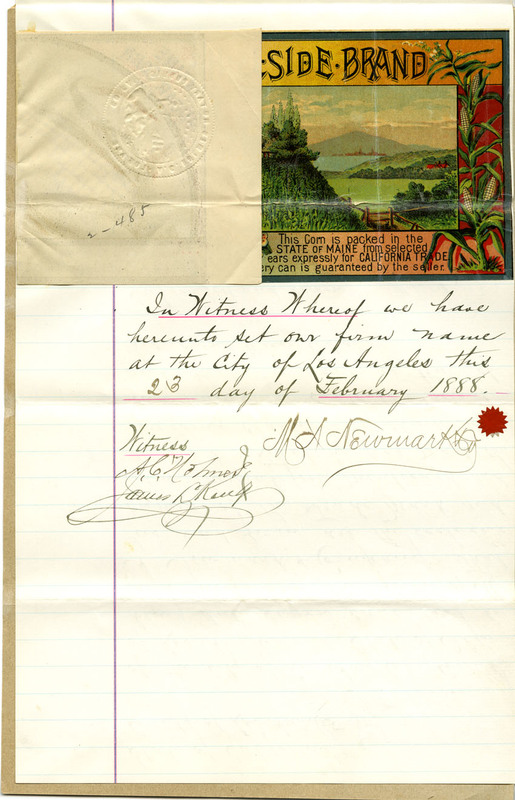 SIDE · BRAND
This Corn is packed in the
STATE OF MAINE from selected
ears expressly for CALIFORNIA TRADE
ery can is guaranteed by the seller.
2-485
In Witness Whereof we have
hereunto set our firm name
at the City of Los Angeles this
23 day of February 1888.
M A Newmark & Co
Witness
James R